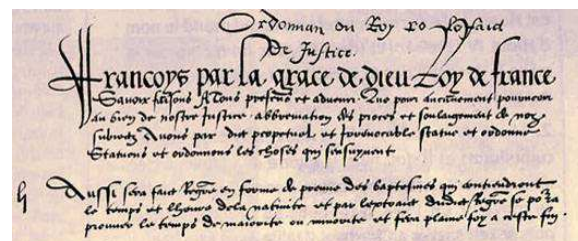 Ordonnan du Roy
de Justice.
Francoys par la grace de dieu Roy de france
Savoir faisons A Tous presens et advenir Que pour aucunement pourveoir
au bien de nostre Justice abbreviation des proces et soulagement de noz
subiectz Avons par edit perpetuel et irrevocable statue et ordonne
Statuons et ordonnons les choses qui sensuyvent
Aussi sera faict Regre en forme de preuve des baptesmes qui contiendront
le temps et lheure dela nativite et par lextraict dudict Regre se pora
prouver le temps de maiorite ou minorite et fera plaine foy a ceste fin.